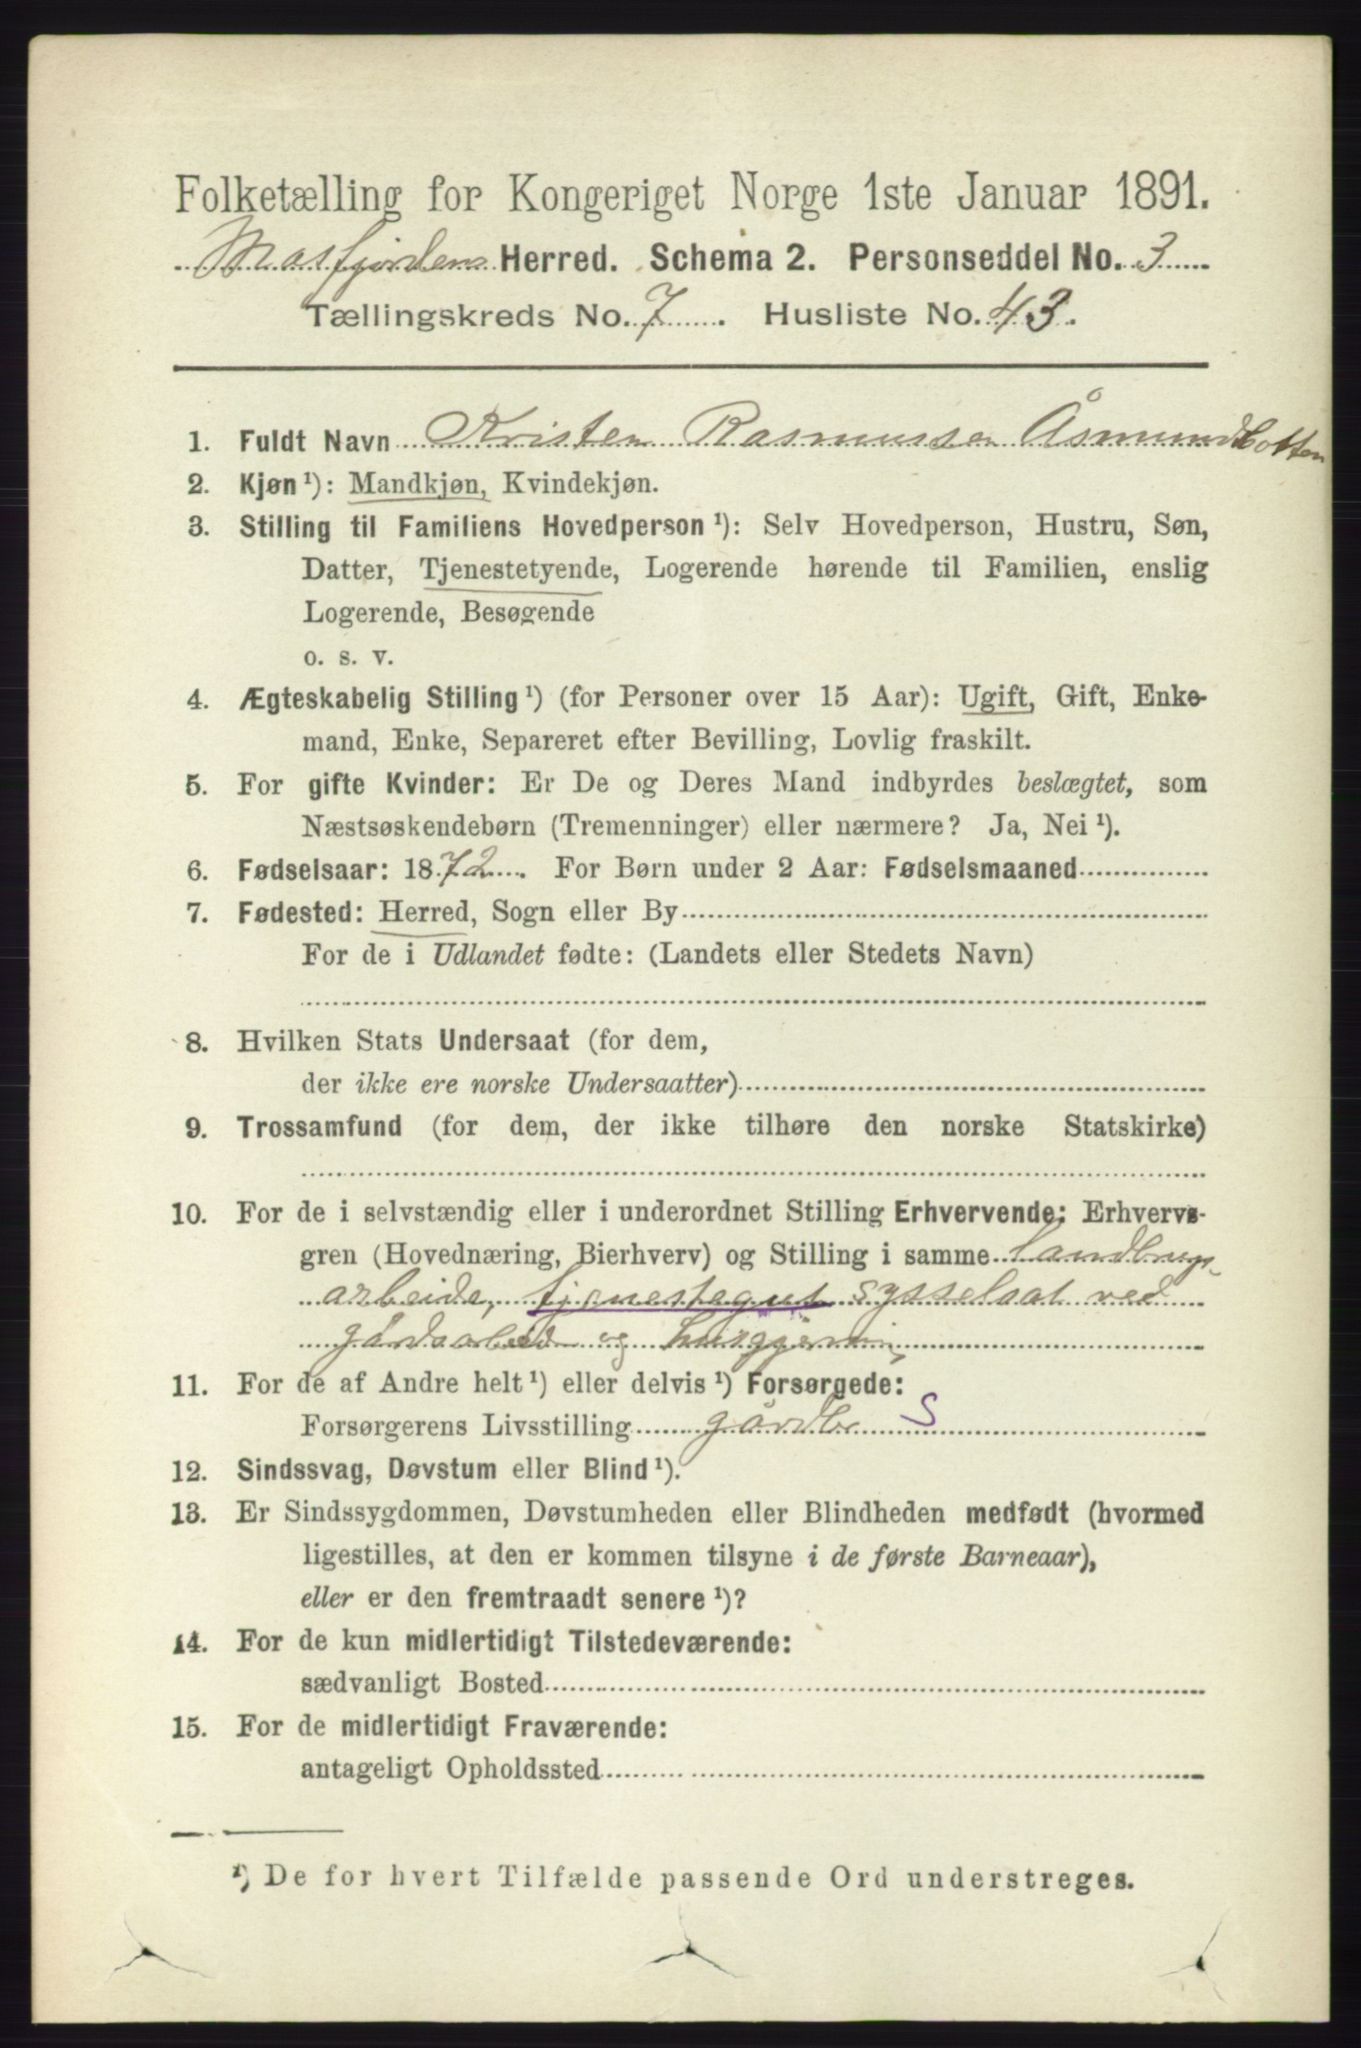 Folketælling for Kongeriget Norge 1ste Januar 1891.
Masfjordens Herred. Schema 2. Personseddel No. 3
Tællingskreds No. 7. Husliste No. 43.
1. Fuldt Navn Kristen Rasmussen Åsmundbotten
2. Kjøn ¹): Mandkjøn, Kvindekjøn.
3. Stilling til Familiens Hovedperson ¹): Selv Hovedperson, Hustru, Søn,
Datter, Tjenestetyende, Logerende hørende til Familien, enslig
Logerende, Besøgende
o. s. v.
4. Ægteskabelig Stilling ¹) (for Personer over 15 Aar): Ugift, Gift, Enke-
mand, Enke, Separeret efter Bevilling, Lovlig fraskilt.
5. For gifte Kvinder: Er De og Deres Mand indbyrdes beslægtet, som
Næstsøskendebørn (Tremenninger) eller nærmere? Ja, Nei ¹).
6. Fødselsaar: 1872. For Børn under 2 Aar: Fødselsmaaned
7. Fødested: Herred, Sogn eller By
For de i Udlandet fødte: (Landets eller Stedets Navn)
8. Hvilken Stats Undersaat (for dem,
der ikke ere norske Undersaatter)
9. Trossamfund (for dem, der ikke tilhøre den norske Statskirke)
10. For de i selvstændig eller i underordnet Stilling Erhvervende: Erhvervs-
gren (Hovednæring, Bierhverv) og Stilling i samme landbrugs-
arbeide, tjenestegut sysselsat ved
gårdsarbeid og husgjerning
11. For de af Andre helt ¹) eller delvis ¹) Forsørgede:
Forsørgerens Livsstilling gårdbr S
12. Sindssvag, Døvstum eller Blind ¹).
13. Er Sindssygdommen, Døvstumheden eller Blindheden medfødt (hvormed
ligestilles, at den er kommen tilsyne i de første Barneaar),
eller er den fremtraadt senere ¹)?
14. For de kun midlertidigt Tilstedeværende:
sædvanligt Bosted
15. For de midlertidigt Fraværende:
antageligt Opholdssted
¹) De for hvert Tilfælde passende Ord understreges.